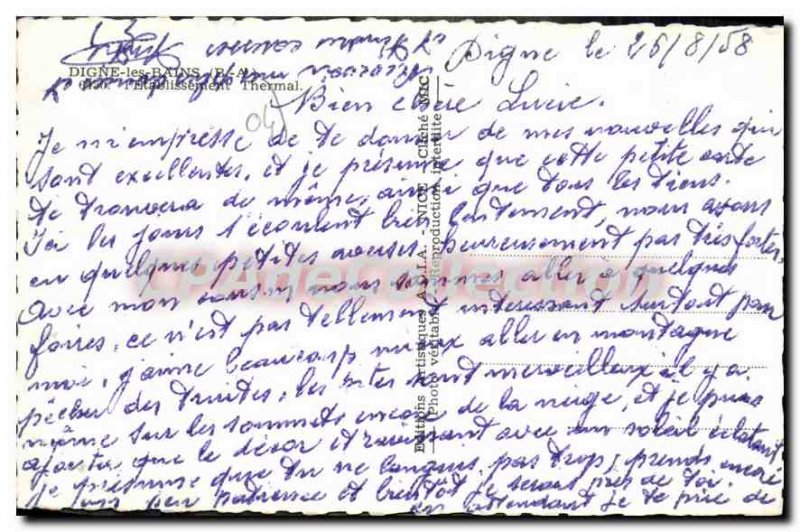 Digne le 26/8/58
DIGNE-les-BAINS (B.-A.)
l'Etablissement Thermal.
Bien chère Lucie.
Je m'empresse de te donner de mes nouvelles qui
sont excellentes, et je présume que cette petite carte
te trouvera de même, ainsi que tous les tiens.
Ici les jours s'écoulent bien lentement, nous avons
eu quelques petites averses, heureusement pas très fortes,
avec mon cousin nous sommes aller à quelques
foires, ce n'est pas tellement intéressant surtout pour
moi, j'aime beaucoup mieux aller en montagne
pêcher des truites, les sites sont merveilleux il y a
même sur les sommets encore de la neige, et je puis
ajouter que le décor est ravissant avec un soleil éclatant
je présume que tu ne languis pas trop, prends encore
un peu patience et bientôt je serai près de toi.
en attendant je te prie de
Editions Artistiques - NICE - Cliché MIC
(Photo véritable) Reproduction interdite
CPArtCollection